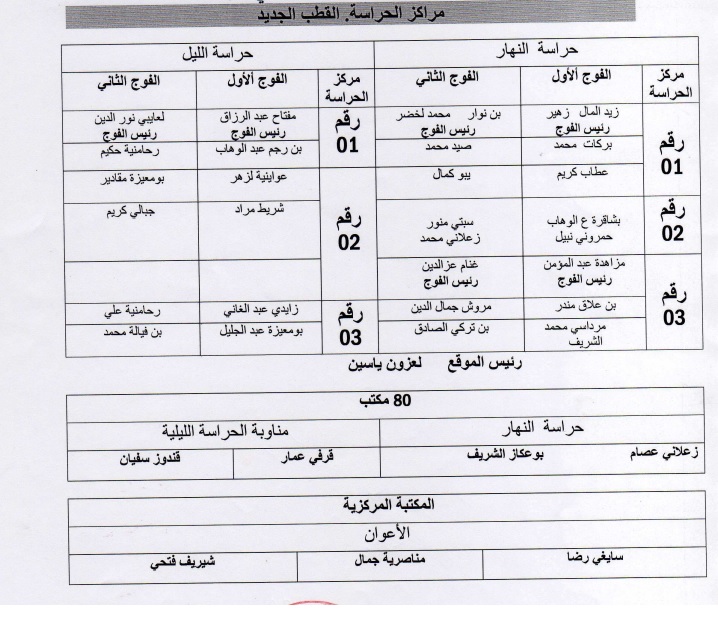 مراكز الحراسة. القطب الجديد
حراسة النهار
حراسة الليل
مركز الحراسة
الفوج الألول
الفوج الثاني
مركز الحراسة
الفوج الألول
الفوج الثاني
رقم 01
زيد المال زهير
رئيس الفوج
بن نوار محمد لخضر
رئيس الفوج
رقم 01
مفتاح عبد الرزاق
رئيس الفوج
لعايبي نور الدين
رئيس الفوج
بركات محمد
صيد محمد
بن رجم عبد الوهاب
رحامنية حكيم
عطاب كريم
يبو كمال
رقم 02
عواينية لزهر
بومعيزة مقادير
رقم 02
بشاقرة ع الوهاب
حمروني نبيل
سبتي منور
زعلاني محمد
شريط مراد
جبالي كريم
رقم 03
مزاهدة عبد المؤمن
رئيس الفوج
غنام عزالدين
رئيس الفوج
بن علاق منذر
مروش جمال الدين
رقم 03
زايدي عبد الغاني
رحامنية علي
مرداسي محمد الشريف
بن تركي الصادق
بومعيزة عبد الجليل
بن فيالة محمد
رئيس الموقع لعزون ياسين
80 مكتب
حراسة النهار
مناوبة الحراسة الليلية
زعلاني عصام
بوعكاز الشريف
قرفي عمار
قندوز سفيان
المكتبة المركزية
الأعوان
سايغي رضا
مناصرية جمال
شيريف فتحي